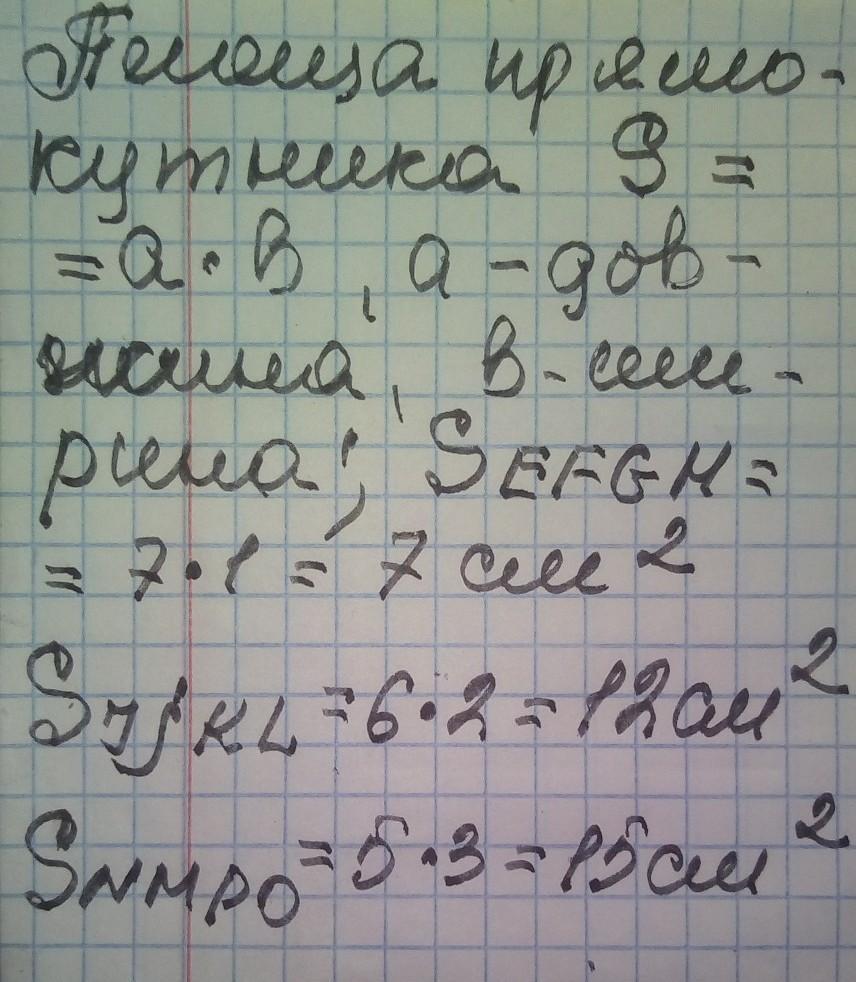 Площа прямо-
кутника S =
= а · в , а - дов-
жина, в - ши-
рина; SEFGH =
= 7 · 1 = 7 см²
SIJKL = 6 · 2 = 12 см²
SNMPO = 5 · 3 = 15 см²